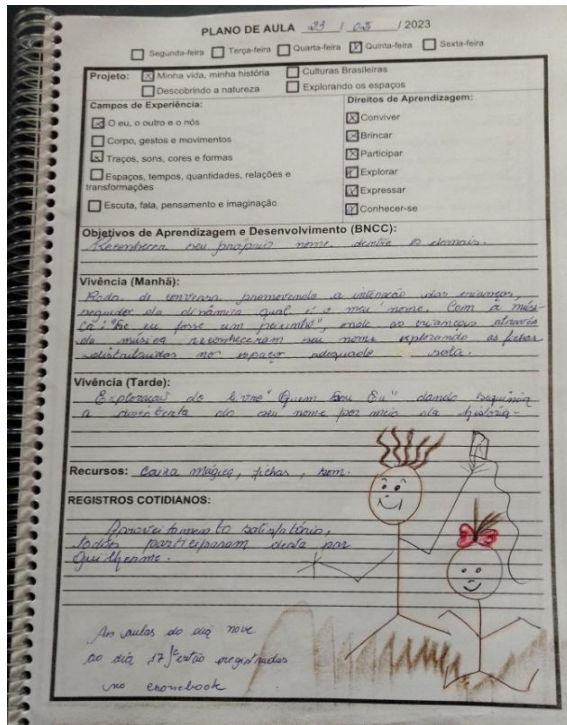 PLANO DE AULA 23 / 02 / 2023
Segunda-feira Terça-feira Quarta-feira Quinta-feira Sexta-feira
Projeto: Minha vida, minha história Culturas Brasileiras
Descobrindo a natureza Explorando os espaços
Campos de Experiência:
O eu, o outro e o nós
Corpo, gestos e movimentos
Traços, sons, cores e formas
Espaços, tempos, quantidades, relações e
transformações
Escuta, fala, pensamento e imaginação
Direitos de Aprendizagem:
Conviver
Brincar
Participar
Explorar
Expressar
Conhecer-se
Objetivos de Aprendizagem e Desenvolvimento (BNCC):
Reconhecer seu próprio nome dentre os demais.
Vivência (Manhã):
Roda de conversa, promovendo a interação das crianças,
seguida da dinâmica qual é o meu nome. Com a músi-
ca: "Se eu fosse um peixinho", onde as crianças através
da música reconheceram seu nome explorando as fichas
distribuídas no espaço adequado sala.
Vivência (Tarde):
Exploração do livro "Quem Sou Eu" dando sequência
a descoberta do seu nome por meio da história.
Recursos: Caixa mágica, fichas, som.
REGISTROS COTIDIANOS:
Aproveitamento satisfatório,
todos participaram por
Guilherme.
As aulas do dia nove
ao dia 17 estão registradas
no cronebook